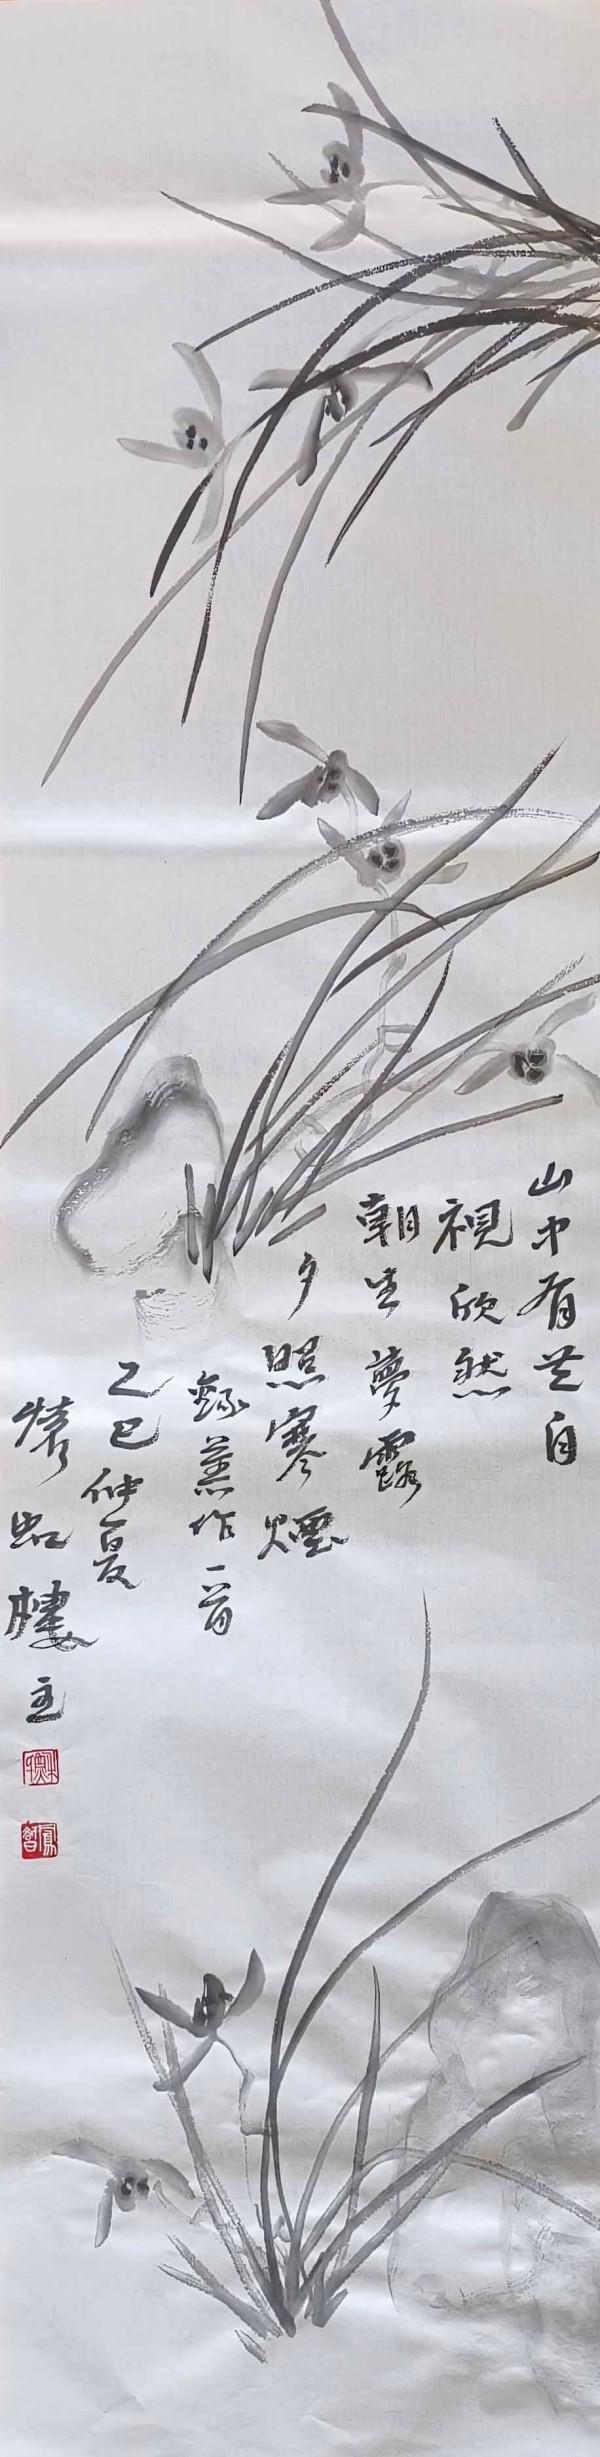 山中有自
視欣然
朝生夢露
夕照寒煙
錄舊作一首
乙巳仲夏
虹樓主